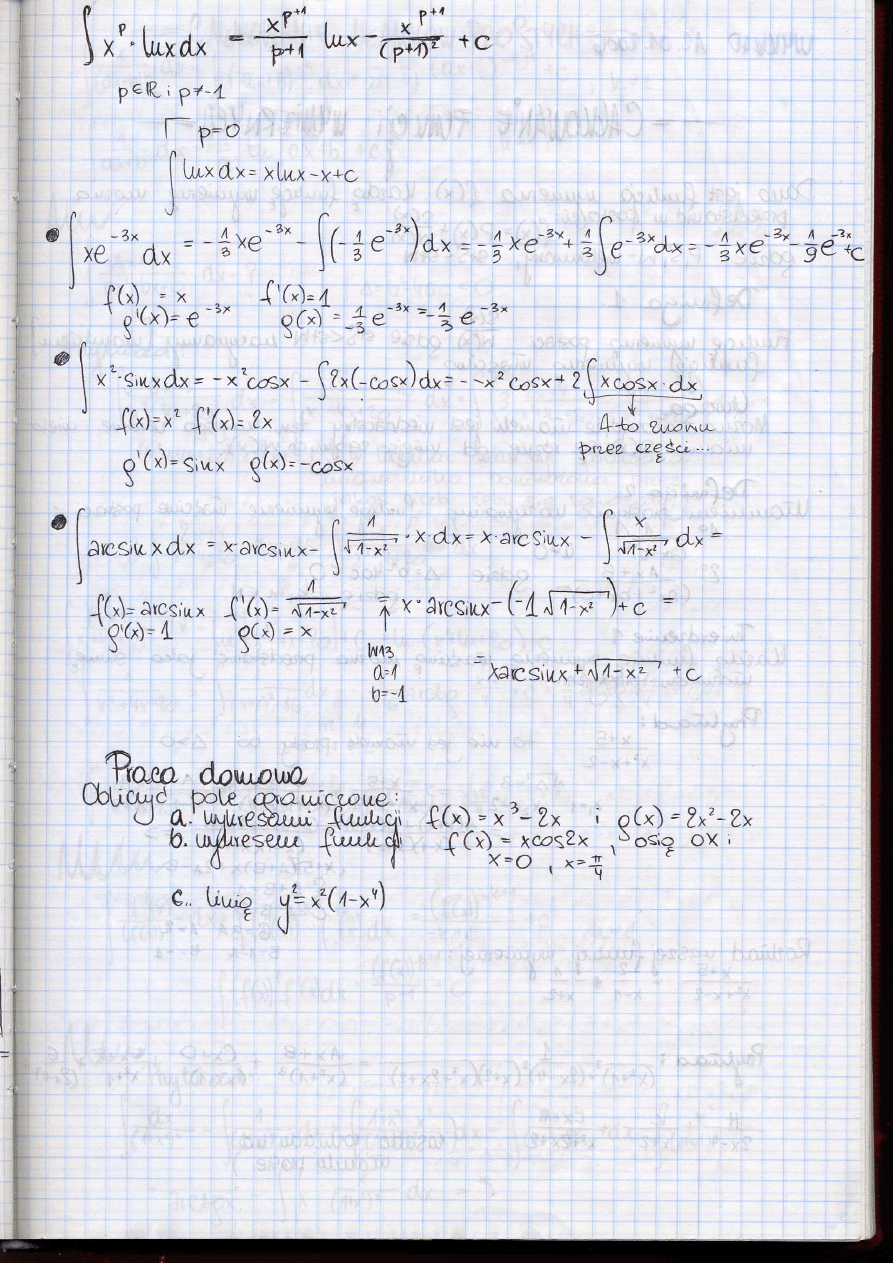 ∫ x^p · lnx dx = x^(p+1)/(p+1) lnx − x^(p+1)/(p+1)² + c
p∈ℝ i p≠−1
p=0
∫ lnx dx = xlnx − x + c
• ∫ xe^(−3x) dx = −1/3 xe^(−3x) − ∫(−1/3 e^(−3x))dx = −1/3 xe^(−3x) + 1/3 ∫e^(−3x)dx = −1/3 xe^(−3x) − 1/9 e^(−3x) + c
f(x) = x f'(x) = 1
g'(x) = e^(−3x) g(x) = 1/−3 e^(−3x) = −1/3 e^(−3x)
• ∫ x²·sinxdx = −x²cosx − ∫2x(−cosx)dx = −x²cosx + 2∫xcosx·dx
f(x)=x² f'(x)=2x A to znowu
przez części...
g'(x)=sinx g(x)=−cosx
• ∫ arcsinxdx = x·arcsinx − ∫ 1/√(1−x²) · x·dx = x·arcsinx − ∫ x/√(1−x²) dx =
f(x)=arcsinx f'(x)= 1/√(1−x²) = x·arcsinx − (−1√(1−x²)) + c =
g'(x)=1 g(x)=x
W13
a=1 = xarcsinx + √(1−x²) + c
b=−1
Praca domowa
Obliczyć pole ograniczone:
a. wykresami funkcji f(x) = x³−2x i g(x) = 2x²−2x
b. wykresem funkcji f(x) = xcos2x, osią OX i
x=0, x=π/4
c.. linię y²=x²(1−x⁴)